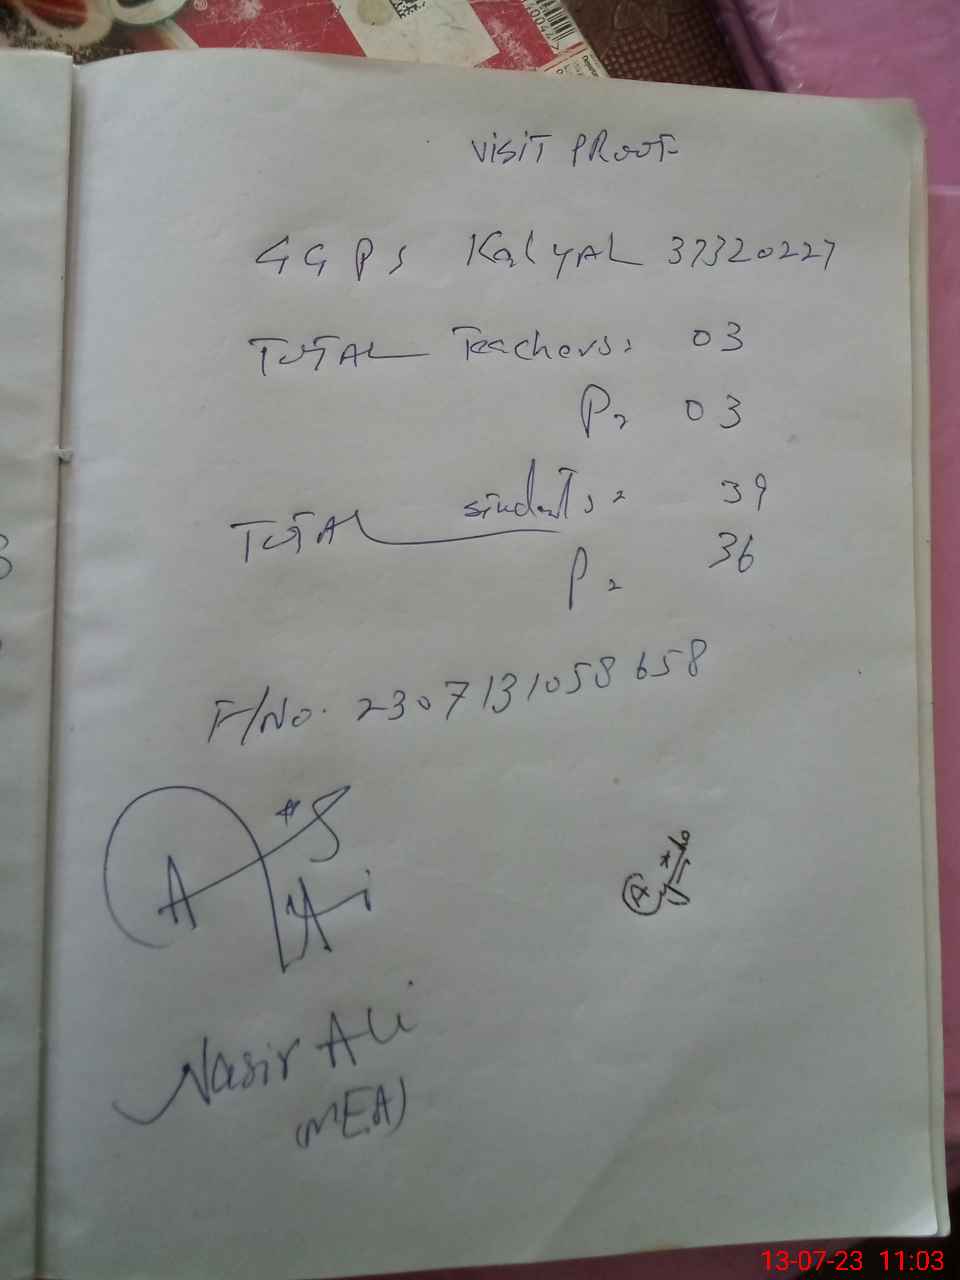 VISIT PROOF
GGPS KALYAL 37320227
TOTAL Teachers: 03
P= 03
TOTAL students= 39
P= 36
F/No. 2307131058658
Nasir Ali
(MEA)
13-07-23 11:03